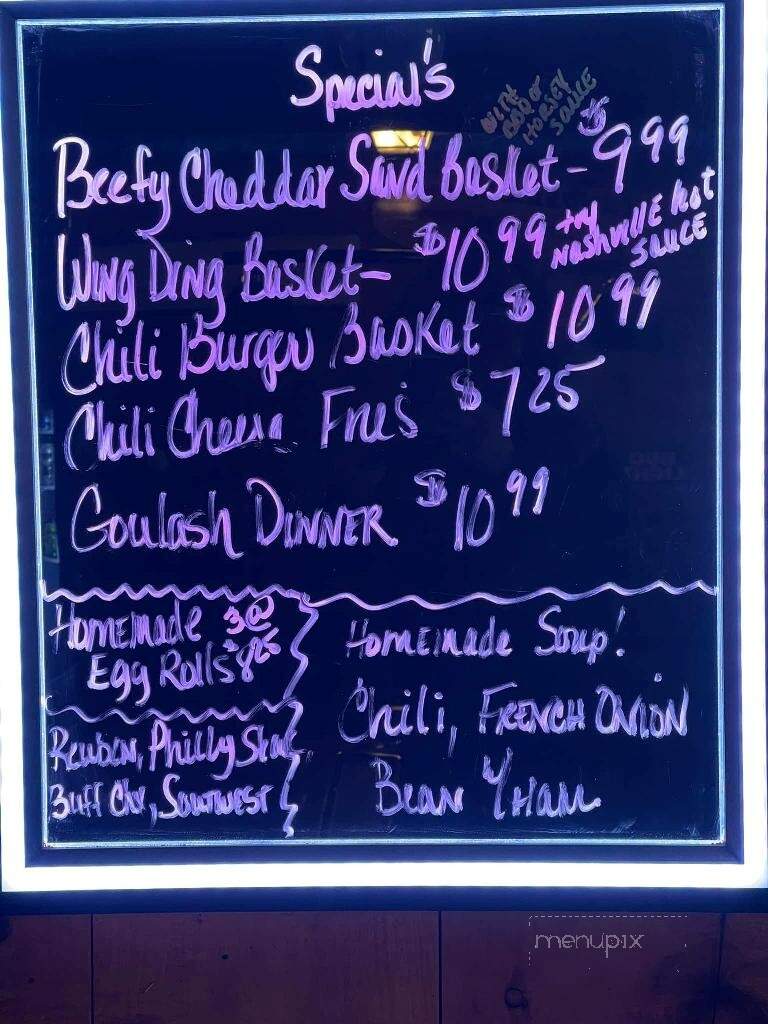 Special's
WITH
BBQ OR
HORSEY
SAUCE
Beefy Cheddar Sand Basket - $9.99
Wing Ding Basket - $10.99
try
NASHVILLE Hot
SAUCE
Chili Burger Basket $10.99
Chili Cheese Frie's $7.25
Goulash DINNER $10.99
HOMEMADE 3@
Egg Rolls $8.25
Reuben, Philly Steak
Buff Ckn, Soutwest
HomEmade Soup!
Chili, FRENCH ONION
Bean w/ Ham
menupix